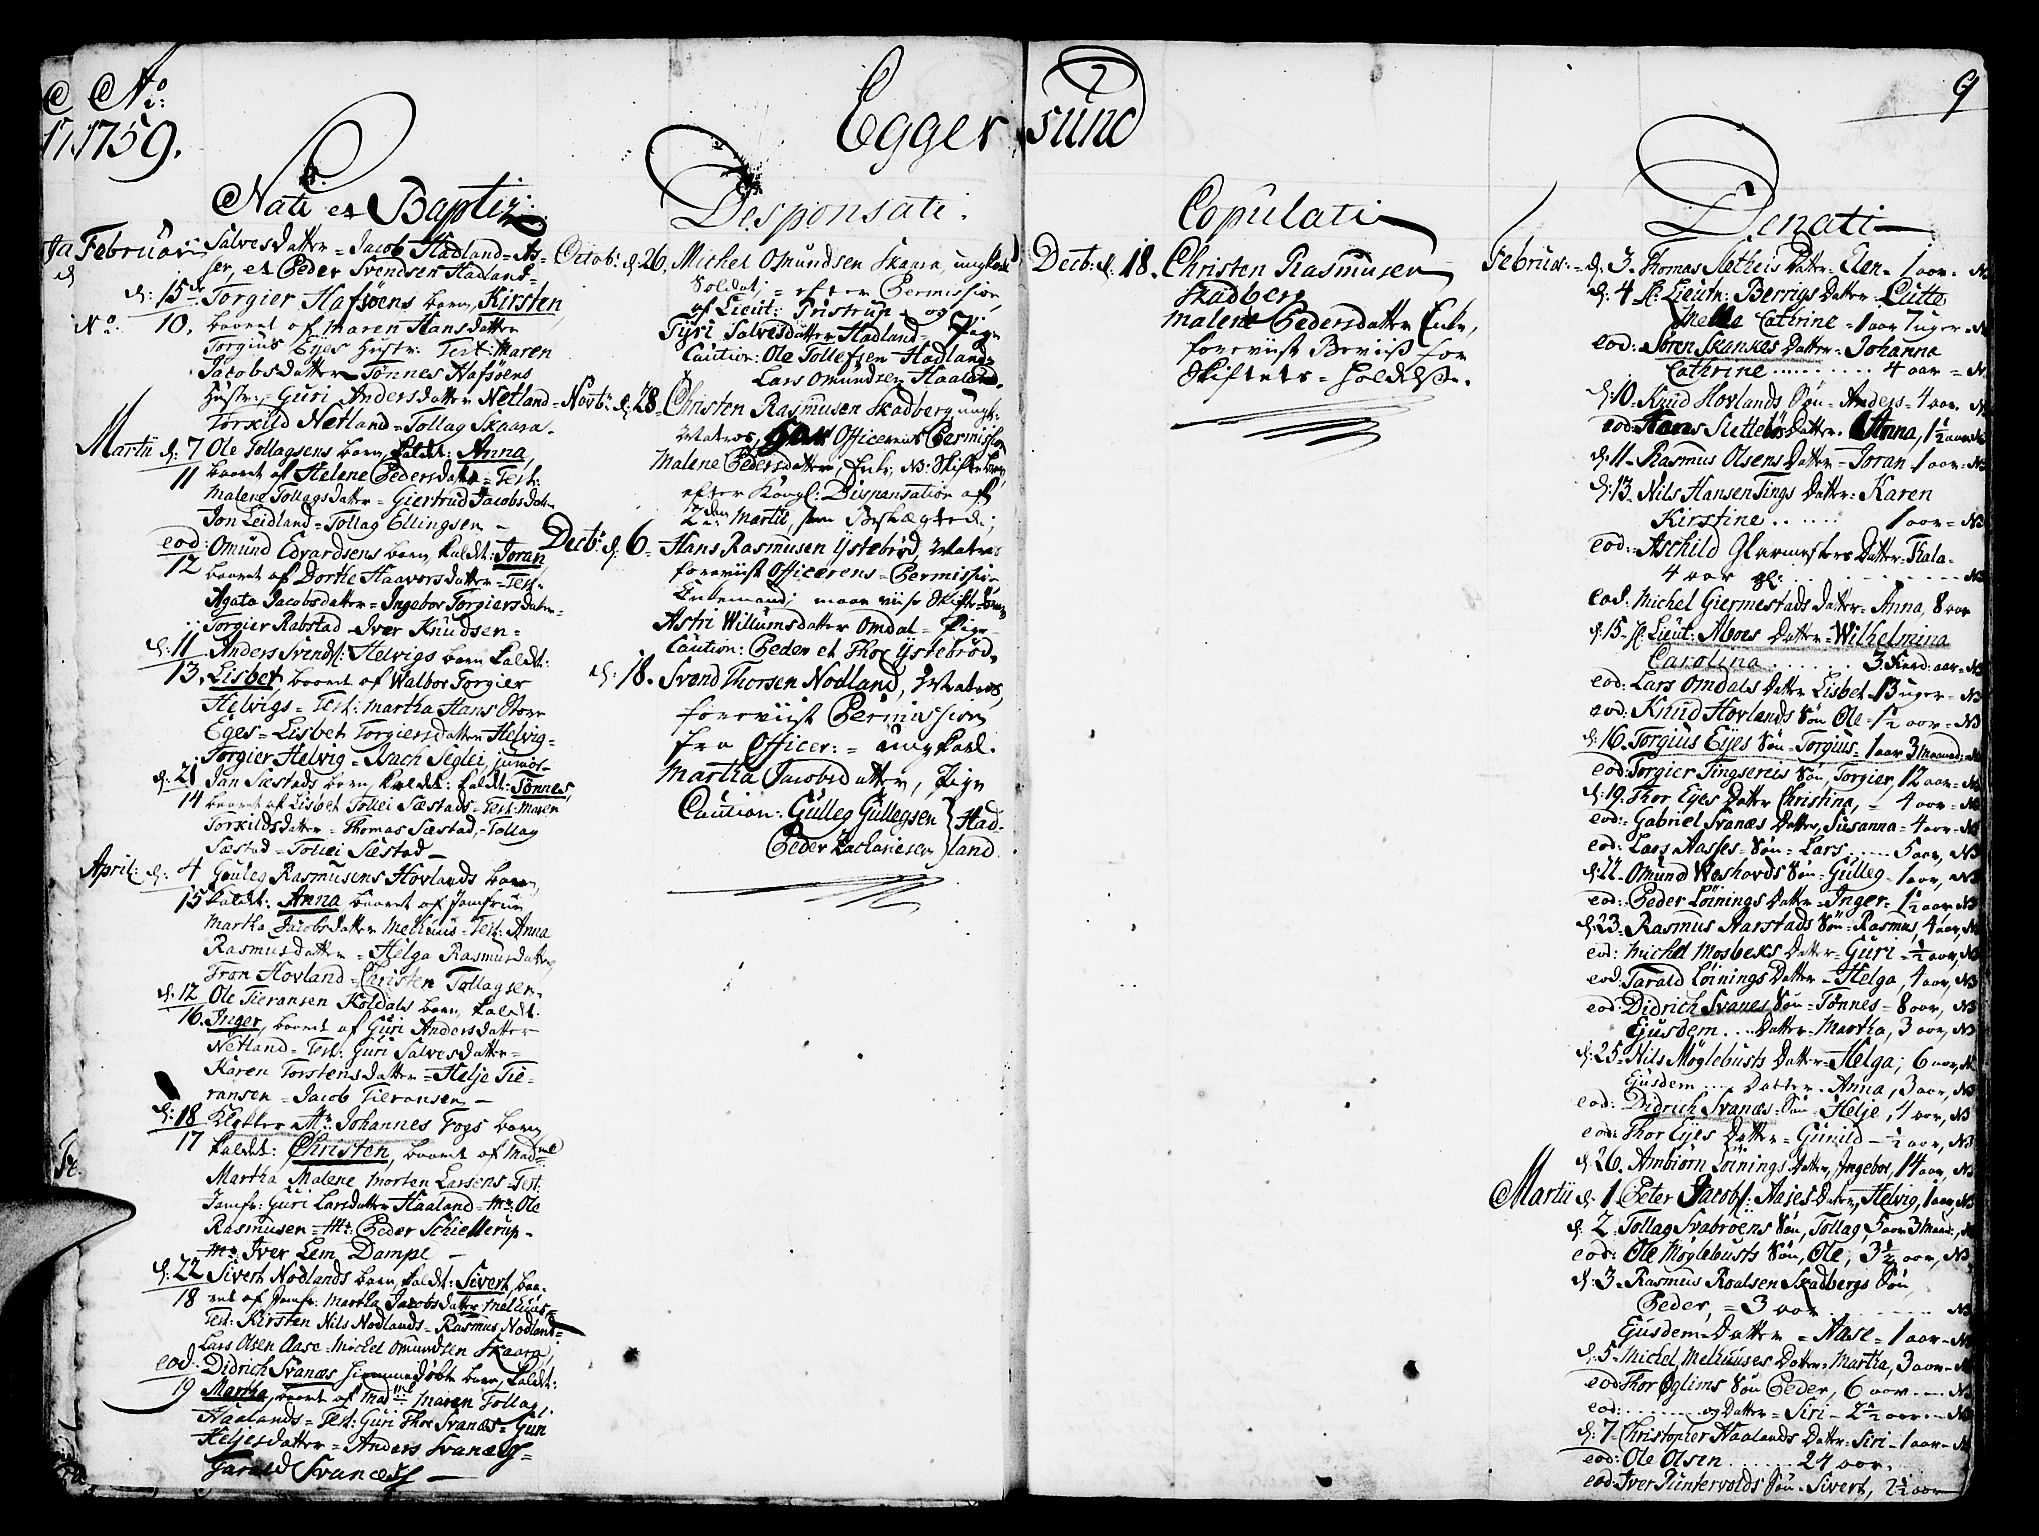 Ao:
1759.
Egger sund
9
Nati et Baptiz:
Februarii Salvesdatter = Jacob Hadland = As-
ser, et Peder Svendsen Hadland =
d: 15de Torgier Hafsöens barn, Kirsten,
No: 10. baaret af Maren Hansdatter
Torgius Eÿes Hustr: Test: Maren
Jacobsdatter Tönnes Hafsöens
Hustr: Guri Andersdatter Netland =
Torkild Netland = Tollag Skaara.
Martii d: 7 Ole Tollagsens barn, kaldt: Anna,
11 baaret af Helene Pedersdatter = Test:
Malene Tollagsdatter = Giertrud Jacobsdatter
Jon Leidland = Tollag Ellingsen —
eod: Omund Edvardsens barn, kaldt: Joran,
12 baaret af Dorthe Haavorsdatter = Test:
Agata Jacobsdatter = Ingebor Torgiersdatter =
Torgier Rabstad = Iver Knudsen =
d: 11 Anders Svends: Helvigs barn kaldt:
13. Lisbet, baaret af Walbor Torgier
Helvigs = Test: Martha Hans Ovre
Eges = Lisbet Torgiersdatter Helvig =
Torgier Helvig = Isach Seglei, junior =
d: 21 Jan Sæstads barn, kaldt: kaldt: Tönnes,
14 baaret af Lisbet Tollei Sæstads = Test: Maren
Torkildsdatter = Thomas Sæstad, = Tollag
Sæstad = Tollei Sæstad —
April: d: 4 Gouleg Rasmusens Hovlands barn,
15 kaldt: Anna baaret af Jomfrue
Martha Jacobsdatter Melhuus = Test: Anna
Rasmusdatter = Helga Rasmusdatter,
Tron Hovland = Christen Tollagsen =
d: 12 Ole Tieransen Koldals barn, kaldt:
16. Inger, baaret af Guri Andersdatter
Netland = Test: Guri Salvesdatter =
Karen Torstensdatter = Helje Tie-
ransen = Jacob Tieransen —
d: 18 Klokker Mr. Johannes Fogs barn
17 kaldt: Christen, baaret af Madme
Martha Malene Morten Larsens = Test:
Jomfr: Guri Larsdatter Haaland = Mr. Ole
Rasmusen = Mr: Peder Schiellerup =
Mr. Iver Lem Dampe —
d: 22 Sivert Nodlands barn, kaldt: Sivert, baa-
18 ret af Jomfr: Martha Jacobsdatter Melhuus =
Test: Kirsten Nils Nodlands = Rasmus Nodland =
Lars Olsen Aase = Michel Omundsen Skaara,
eod: Didrich Svanæs hiemmedöbte barn, kaldt:
19 Martha, baaret af Madme Maren Tollag
Haalands = Test: Guri Thor Svanæs = Gun
Heljesdatter = Anders Svanæs =
Tarald Svanæs —
Desponsati.
Octob: d: 26. Michel Omundsen Skaara, ungkarl
Soldat; = efter Permission
af Lieut: Pristrup = og
Tÿri Salvesdatter Hadland = Pige
Caution: Ole Tollefsen Hadland =
Lars Omundsen Haaland.
Novb: d: 28. Christen Rasmusen Skadberg ungk:
Matros, Officerens Permission
Malene Pedersdatter, Enke, NB: Skiftebrev,
efter Kongl: Dispensation af
2den Martii, som Beslægtede;
Decb: d: 6 = Hans Rasmusen Ÿstebröd, Matros
foreviist Officerens = Permission
Enkemand;
Astri Willumsdatter Omdal = Pige
Caution: Peder et Thor Ÿstebröd.
d: 18. Svend Thorsen Nodland, Matros,
foreviist Permission
fra Officer: = ungkarl.
Martha Jacobsdatter, Pige
Caution: Gulleg Gullegsen } Had-
Peder Zachariesen } land.
Copulati
Decb: d: 18. Christen Rasmusen
Skadberg
Malene Pedersdatter Enke,
foreviist Beviis for
Skiftets = Holdelse.
Denati
Februar: = d: 3. Thomas Sletheis Datter = Elen = 1 aar = NB
d: 4 Hr: Lieutn: Berrigs Datter = Lutte
Mella Cathrine = 1 aar 7 uger = NB
eod: Sören Skankes Datter = Johanna
Cathrine . . . . . . . . . 4 aar = NB
d: 10 = Knud Hovlands Sön = Anders = 4 aar. NB
eod: Hans Slettebös Datter = Anna, 1½ aar NB
d: 11 = Rasmus Olsens Datter = Joran = 1 aar = NB
d: 13. Nils Hansen Tings Datter = Karen
Kirstine . . . . . 1 aar = NB
eod: Aschild Glarmesters Datter =
4 aar gl: . . . . . . . . . . NB
eod: Michel Giermestads Datter = Anna, 8 aar
d: 15 = Hr: Lieut: Aboes Datter = Wilhelmina
Carolina . . . . . . 3 Fierd: aar = NB
eod: Lars Omdals Datter Lisbet = 13 uger = NB
eod: Knud Hovlands Sön Ole = 1½ aar = NB
d: 16. Torgius Eÿes Sön = Torgius = 1 aar 3 Maaned: NB
eod: Torgier Tingseries Sön, Torgier, 12 aar = NB
d: 19. Thor Eÿes Datter Christina, = 4 aar = NB
eod: Gabriel Svanæs Datter, Susanna = 4 aar = NB
eod: Lars Aases = Sön = Lars . . . . 5 aar, NB
d: 22 = Omund Weshovds Sön = Gulleg = 1 aar, NB
eod: Peder Löinings Datter = Inger = 1½ aar NB
d: 23. Rasmus Aarstads Sön = Rasmus, 4 aar, NB
eod: Michel Mosbeks Datter = Guri = ½ aar, NB
eod: Tarald Löinings Datter = Helga, 4 aar, NB
eod: Didrich Svanes Sön = Tönnes = 8 aar, NB
Ejusdem . . . Datter = Martha, 3 aar, NB
d: 25 = Nils Möglebusts Datter = Helga, 6 aar, NB
Ejusdem . . . Datter = Anna, 3 aar, NB
eod: Didrich Svanæs = Sön = Helje, 4 aar, NB
eod: Thor Eÿes Datter = Gunild = ½ aar, NB
d: 26. Ambiörn Löinings Datter, Ingebor, 14 aar, NB
Martii d: 1. Peter Jacobs: Aases Datter, Helvig, 1 aar, NB
d: 2. Tollag Svabroens Sön, Tollag, 5 aar 3 Maan:, NB
eod: Ole Möglebusts Sön, Ole, 3½ aar, NB
d: 3. Rasmus Roalsen Skadbergs Sön,
Peder, = 3 aar . . . . . . . . . . NB
Ejusdem = Datter = Aase = 1 aar = NB
d: 5 = Michel, Melhuuses Datter = Martha, 3 aar = NB
eod: Thor Oglims Sön Peder, 6 aar . . . NB
eod: . . . . . . . og Datter = Siri = 2½ aar . . NB
d: 7 = Christopher Haalands Datter = Siri = 1 aar = NB
eod: Ole Olsen . . . . . . . 24 aar.
eod: Iver Puntervolds Sön = Sivert, 2½ aar